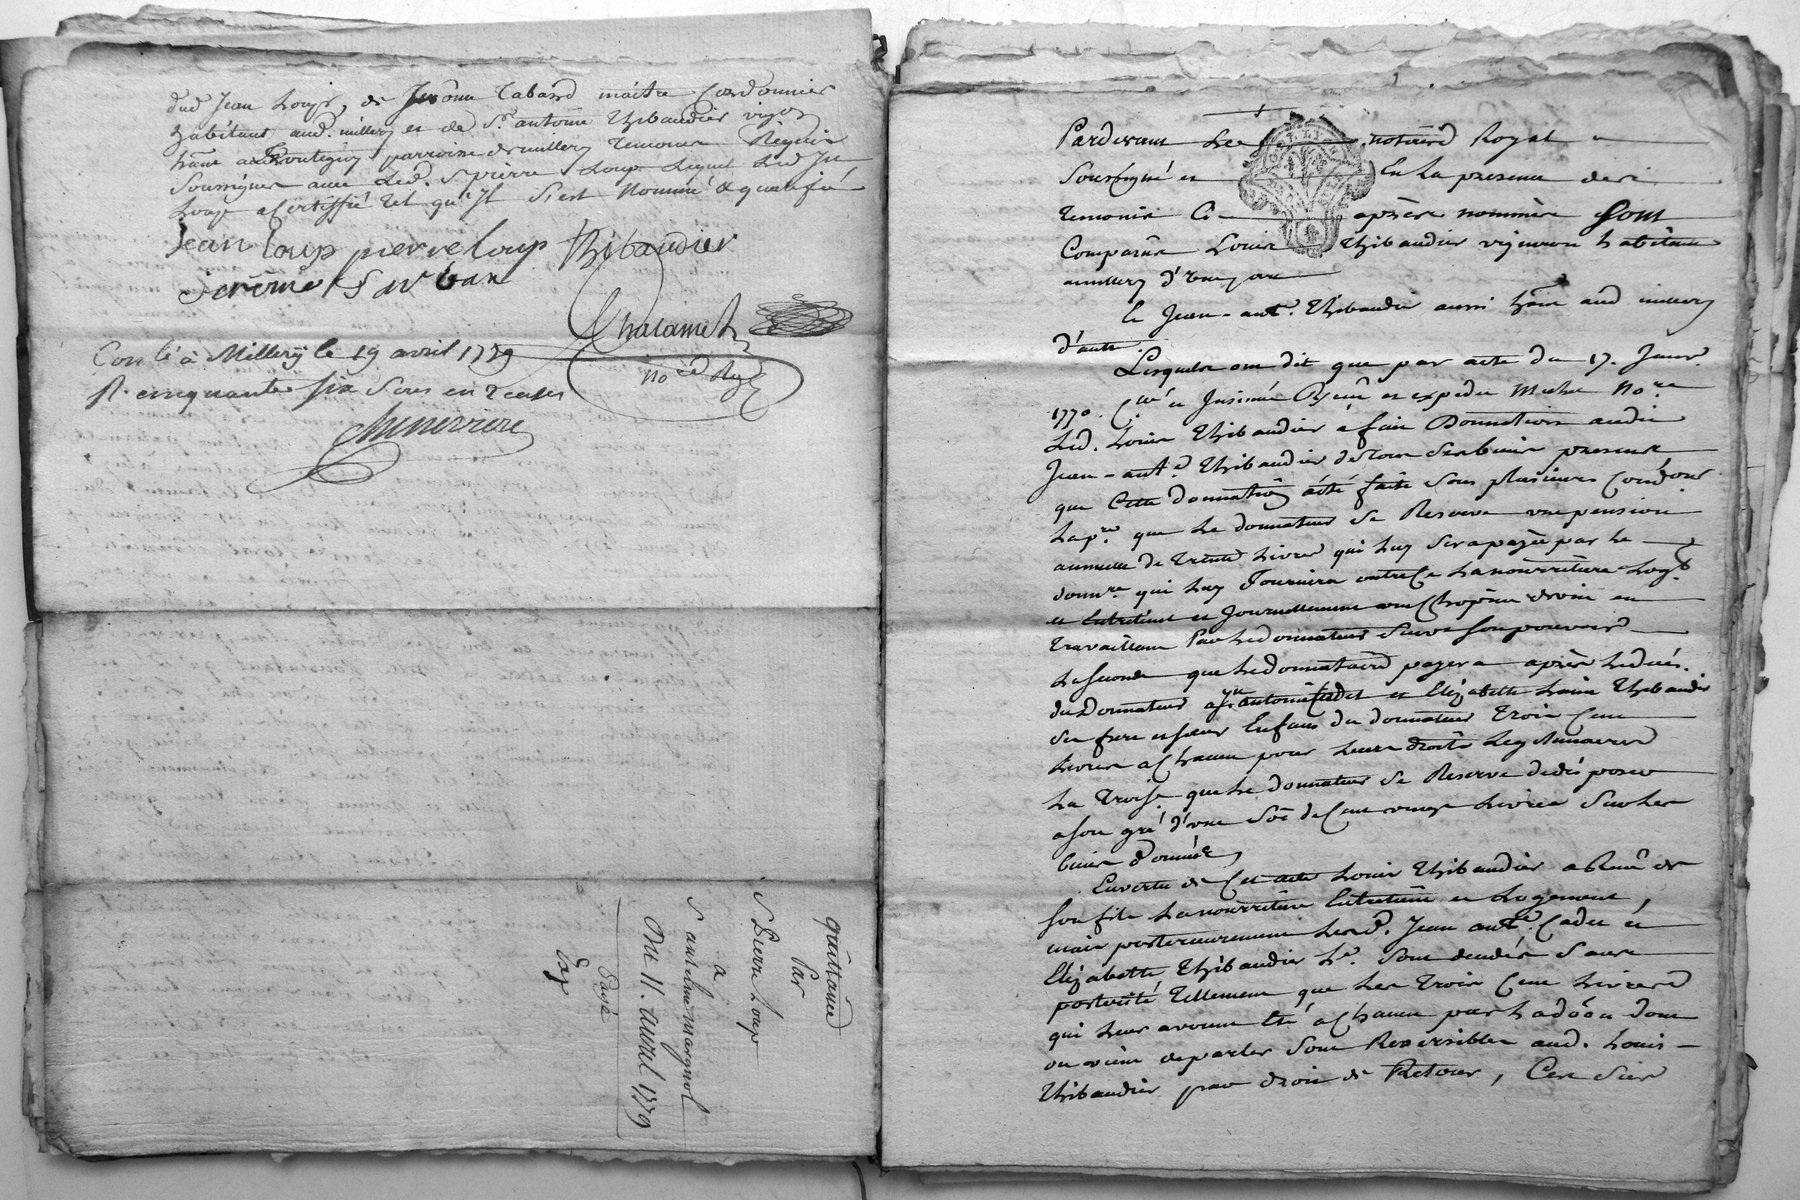 dud Jean Loup, de Jerôme Cabard maitre Cordonnier
habitant aud. millery et de Sr. antoine Thibaudier vigon
hânt a parroisse de millery temoins Requis
Soussignes avec led. S pierre Loup Lequel Led Jn
Loup a Certiffié tel qu'Jl S'est Nommé & qualifié
Jean loup pierre loup Thibaudier
Jereme
Chalamel
no re Ry
Con lé à Millery le 19 avril 1779
R. cinquante six Sous en
Chenerriere
quittance
Par
S Pierre Loup
a
S antelme magnol
Du 11. avril 1779
Payé
Exp
Pardevant Les notaires Royal
Soussigné et En La presence des
temoins Ci après nommés Sont
Comparus Louis Thibaudier vigneron habitant
a millery d'une part
Et Jean-ant. Thibaudier aussi hânt aud millery
d'autre.
Lesquels ont dit que par acte du 17. Janv.
1770. Cllé et Jnsinué Reçu et expedié Michel Nore
Led. Louis Thibaudier a fait Donnation audit
Jean-ant. Thibaudier de tous Ses biens presents
que Cette donnation a été faite Sous plusieurs Condons
La pre. que Le donnateur Se Reserve une pension
annuelle de trente Livres qui Luy Sera payée par Le
donnre qui Luy Fournira outre Ce La nourriture Logt.
et Entretient et Journellement
travaillant Par Le donnateur Suivt Son pouvoir
La Seconde que Le donnataire payera après Le décès.
du Donnateur a Jn antoine Cadet et Elizabette Thibaudier
Ses frere et Sœur Enfans du donnateur trois Cent
Livres a Chacun pour Leurs droits Legitimaires
La troise. que Le donnateur Se Reserve de disposer
a Son gré d'une Soe de Cent vingt Livres Sur Les
biens donnés
En vertu de Cet acte Louis Thibaudier a Reçu de
Son fils La nourriture Entretien et Logement,
mais posterieurement Lesd. Jean ant. Cadet et
Elizabette Thibaudier Sont decedés Sans
posterité tellement que Les trois Cent Livres
qui Leur avoient Eté a Chacun par La doâon dont
on vient de parler Sont Reversibles aud. Louis
Thibaudier par droit de Retour, Ces Six